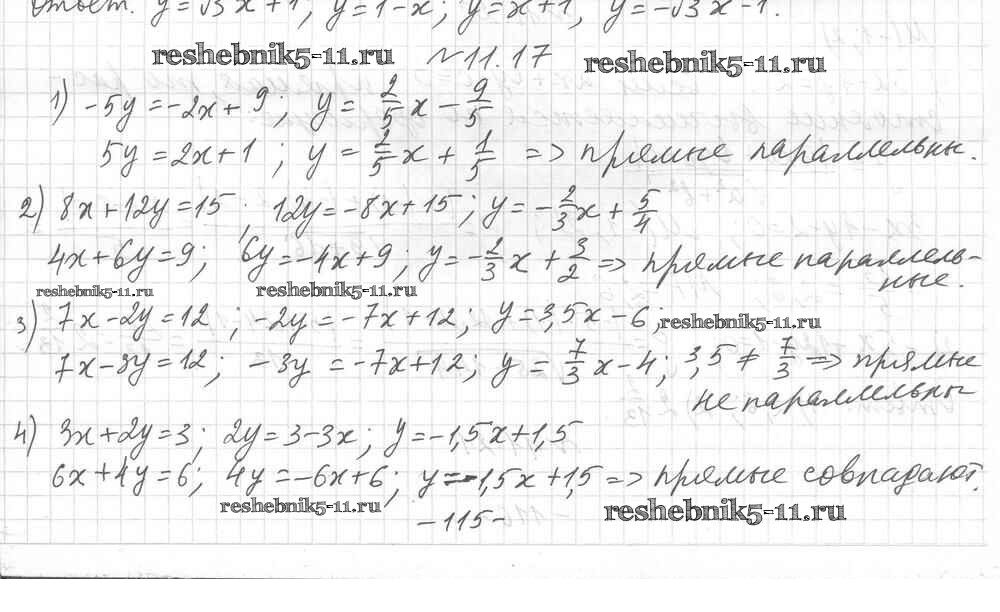 Ответ. y=√3x+1; y=1-x; y=x+1, y=-√3x-1.
reshebnik5-11.ru №11.17 reshebnik5-11.ru
1) -5y=-2x+9; y= 2/5 x - 9/5
5y=2x+1; y= 2/5 x + 1/5 => прямые параллельны.
2) 8x+12y=15; 12y=-8x+15; y=-2/3 x + 5/4
4x+6y=9; 6y=-4x+9; y=-2/3 x + 3/2 => прямые параллель-
ные.
reshebnik5-11.ru reshebnik5-11.ru
3) 7x-2y=12; -2y=-7x+12; y=3,5x-6; reshebnik5-11.ru
7x-3y=12; -3y=-7x+12; y= 7/3 x-4; 3,5≠ 7/3 => прямые
не параллельны
4) 3x+2y=3; 2y=3-3x; y=-1,5x+1,5
6x+4y=6; 4y=-6x+6; y=-1,5x+1,5 => прямые совпадают.
reshebnik5-11.ru -115- reshebnik5-11.ru